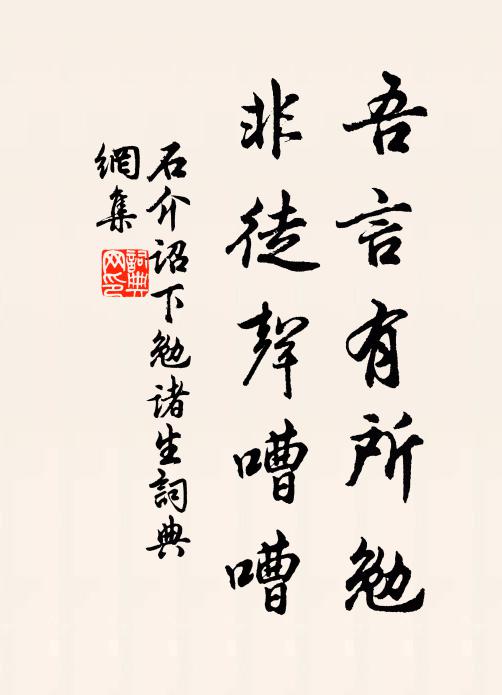 吾言有所勉
非徒聲嘈嘈
石介詔下勉諸生詞典
網集
詞典網印